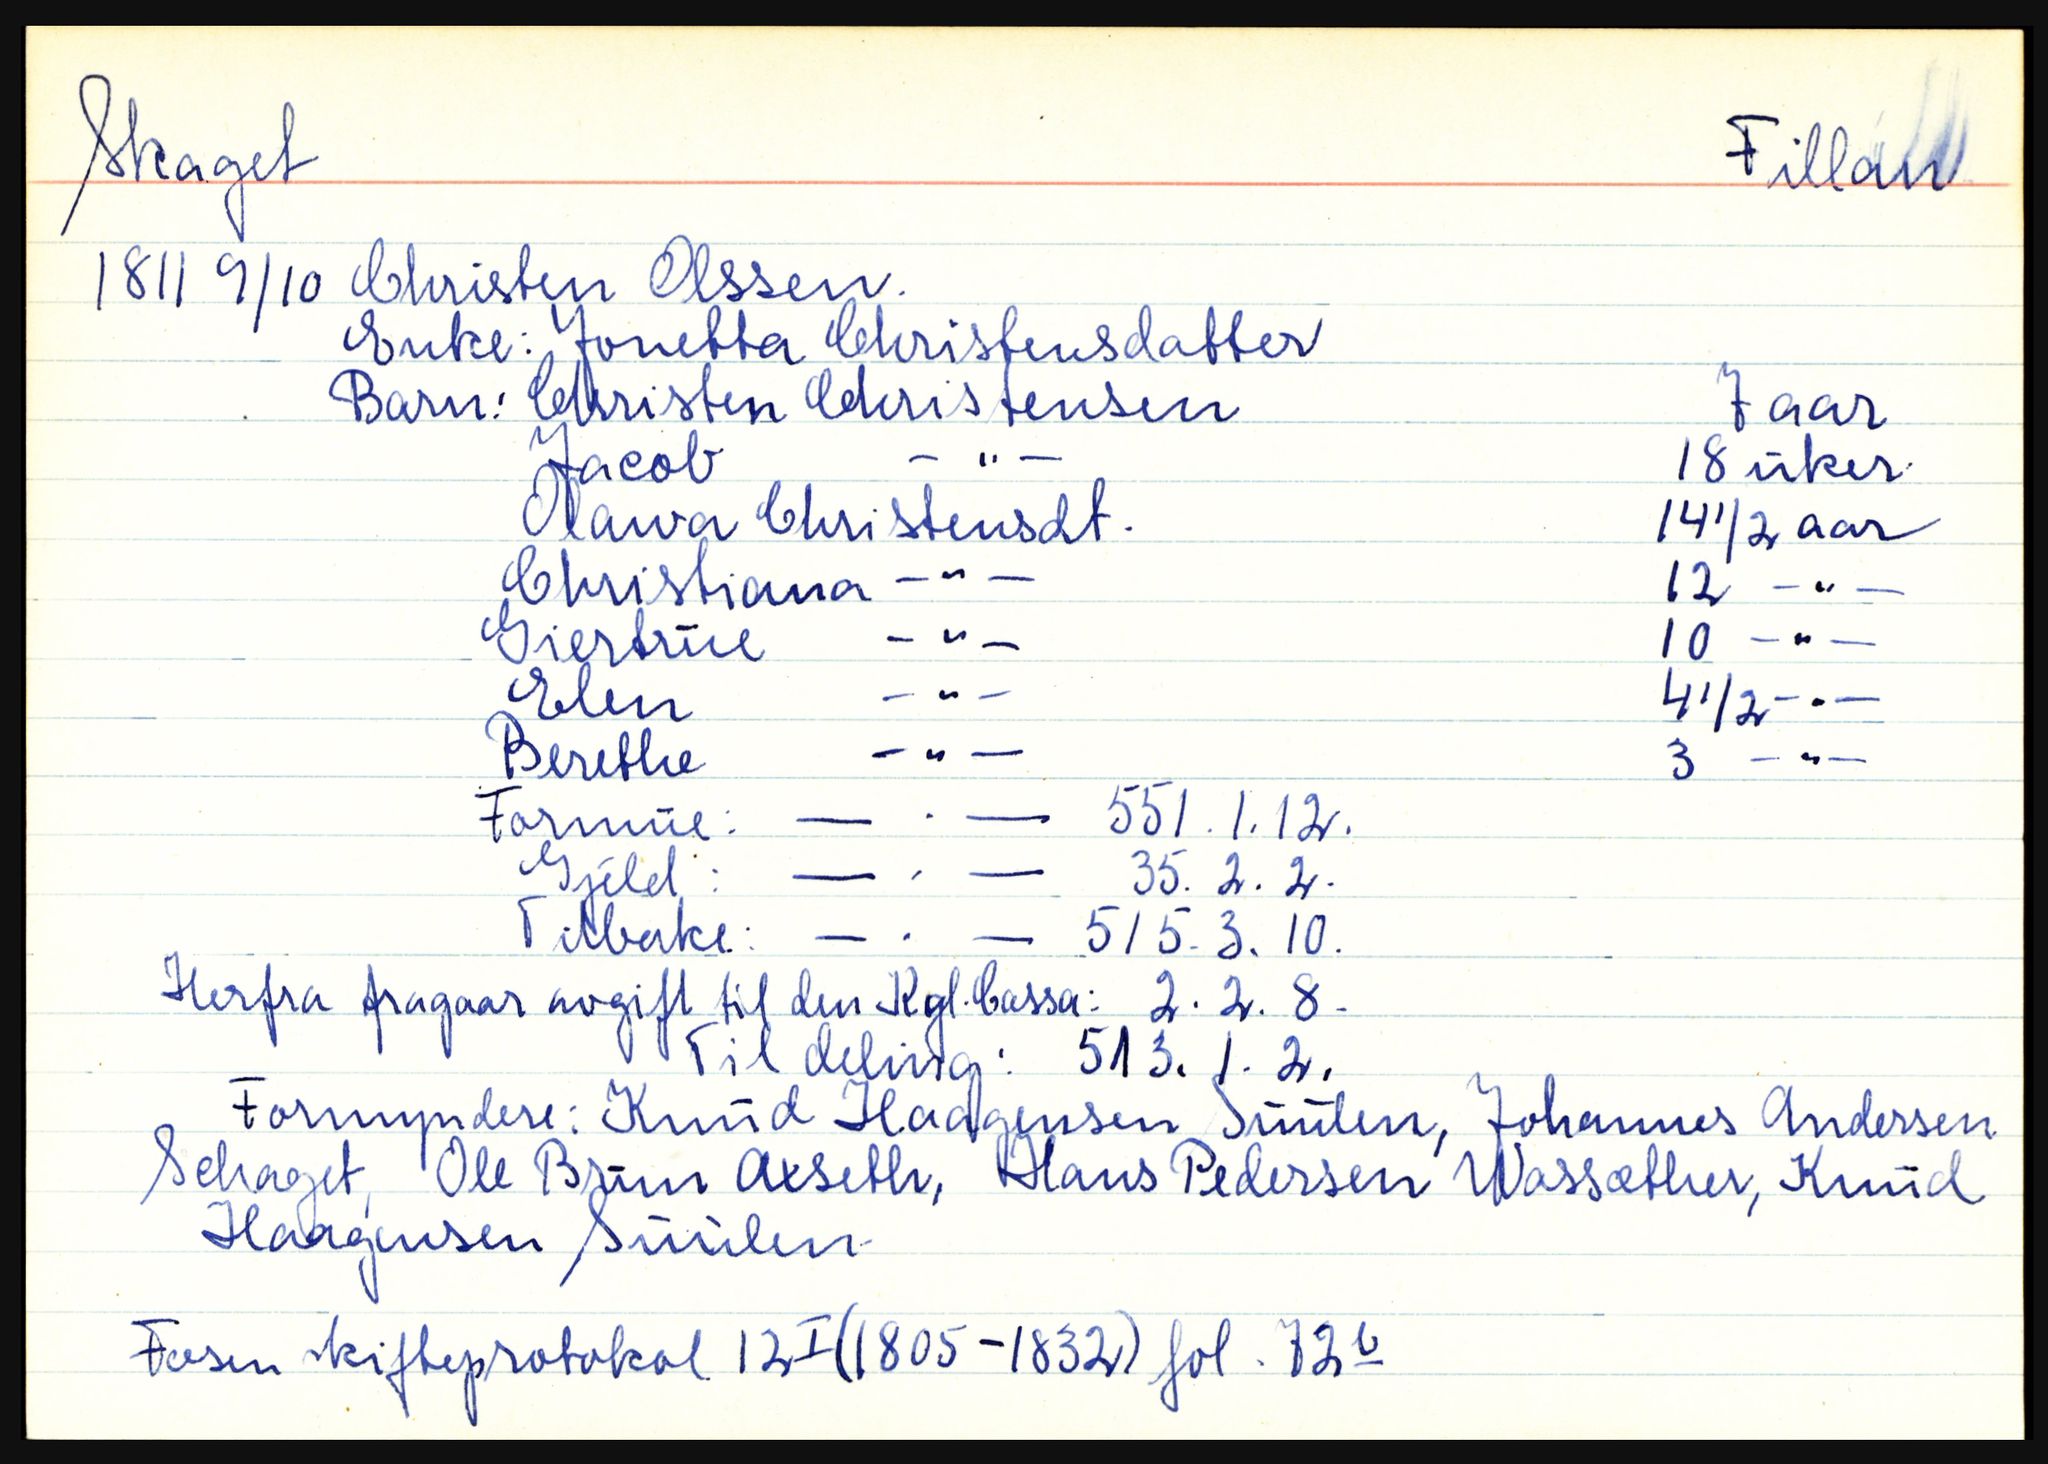 Skaget Fillan
1811 9/10 Christen Olssen.
Enke: Jonetta Christensdatter
Barn: Christen Christensen 7 aar
Jacob - " - 18 uker
Olava Christensdt. 14 1/2 aar
Christiana - " - 12 - " -
Giertrue - " - 10 - " -
Elen - " - 4 1/2 - " -
Berethe - " - 3 - " -
Formue: — . — 551. 1. 12.
Gjeld: — . — 35. 2. 2.
Tilbake: — . — 515. 3. 10.
Herfra fragaar avgift til den Kgl. Cassa: 2. 2. 8.
Til deling: 513. 1. 2.
Formyndere: Knud Haagensen Suulen, Johannes Andersen
Schaget, Ole Brun Axseth, Hans Pedersen Wassæther, Knud
Haagensen Suulen
Fosen skifteprotokol 12 I (1805-1832) fol. 72 b